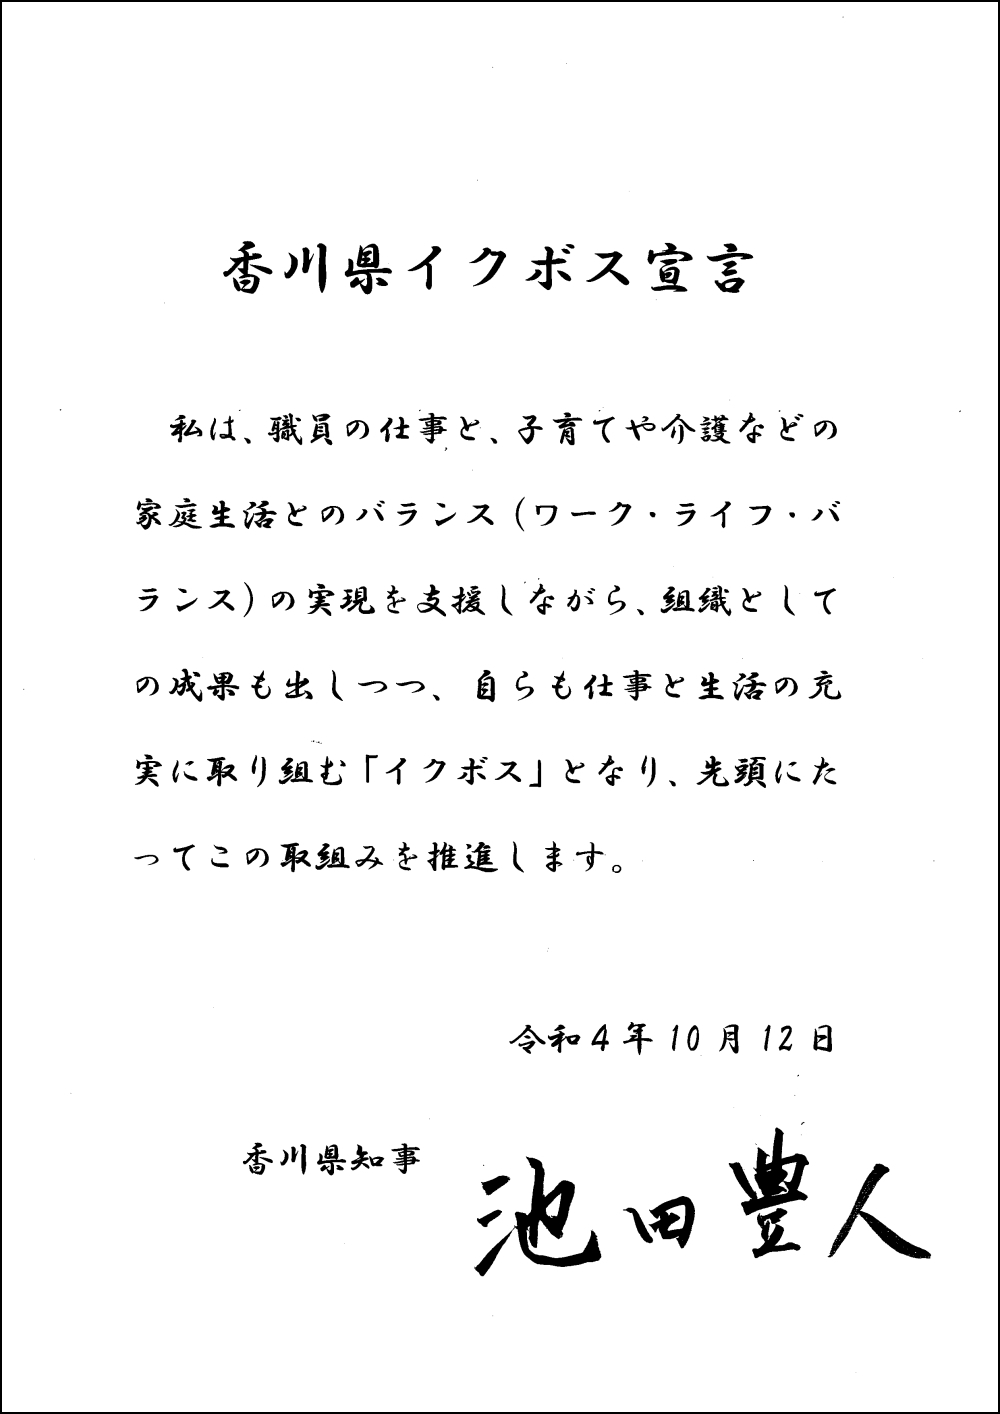 香川県イクボス宣言
私は、職員の仕事と、子育てや介護などの
家庭生活とのバランス(ワーク・ライフ・バ
ランス)の実現を支援しながら、組織として
の成果も出しつつ、自らも仕事と生活の充
実に取り組む「イクボス」となり、先頭にた
ってこの取組みを推進します。
令和4年10月12日
香川県知事 池田豊人